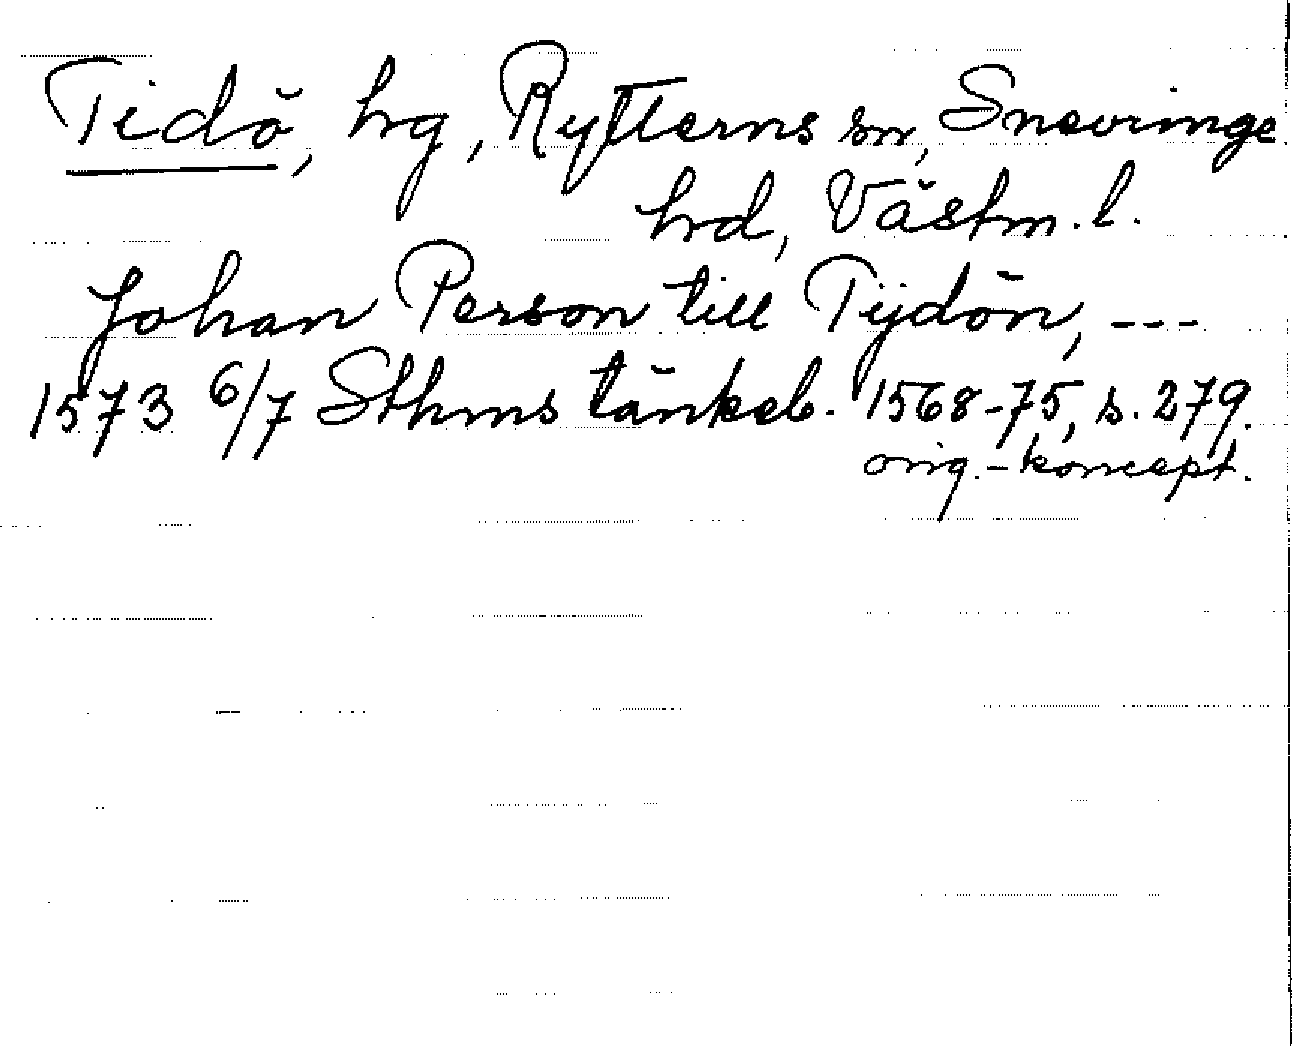 Tidö, hg, Rytterns sn, Snevringe
hd, Västm. l.
Johan Person till Tijdön, ---
1573 6/7 Sthms tänkeb. 1568-75, s. 279.
orig.-koncept.